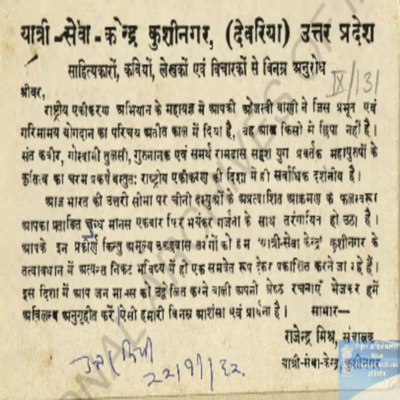 यात्री-सेवा-केन्द्र कुशीनगर, (देवरिया) उत्तर प्रदेश
साहित्यकारों, कवियों, लेखकों एवं विचारकों से विनम्र अनुरोध
IX/131
श्रीवर,
राष्ट्रीय एकीकरण अभियान के महायज्ञ में आपकी ओजस्वी वाणी ने जिस प्रभूत एवं
गरिमामय योगदान का परिचय अतीत काल में दिया है, वह आज किसी से छिपा नहीं है।
संत कबीर, गोस्वामी तुलसी, गुरुनानक एवं समर्थ रामदास सदृश युग प्रवर्तक महापुरुषों के
कृतित्व का चरम प्रकर्ष वस्तुतः राष्ट्रीय एकीकरण की दिशा में ही सर्वाधिक दर्शनीय है।
आज भारत की उत्तरी सीमा पर चीनी दस्युओं के अप्रत्याशित आक्रमण के फलस्वरूप
आपका प्रताड़ित क्षुब्ध मानस एकबार फिर भयंकर गर्जना के साथ तरंगायित हो उठा है।
आपके इन प्रकीर्ण किन्तु अमूल्य तरंगों को हम 'यात्री-सेवा केन्द्र' कुशीनगर के
तत्वावधान में अत्यन्त निकट भविष्य में ही एक समवेत रूप देकर प्रकाशित करने जा रहे हैं।
इस दिशा में आप जन मानस को उद्वेलित करने वाली अपनी श्रेष्ठ रचनाएँ भेजकर हमें
अविलम्ब अनुगृहीत करें, ऐसी हमारी विनम्र आशंसा एवं प्रार्थना है। साभार—
राजेन्द्र मिश्र, संचालक
यात्री-सेवा-केन्द्र, कुशीनगर
22/9/62